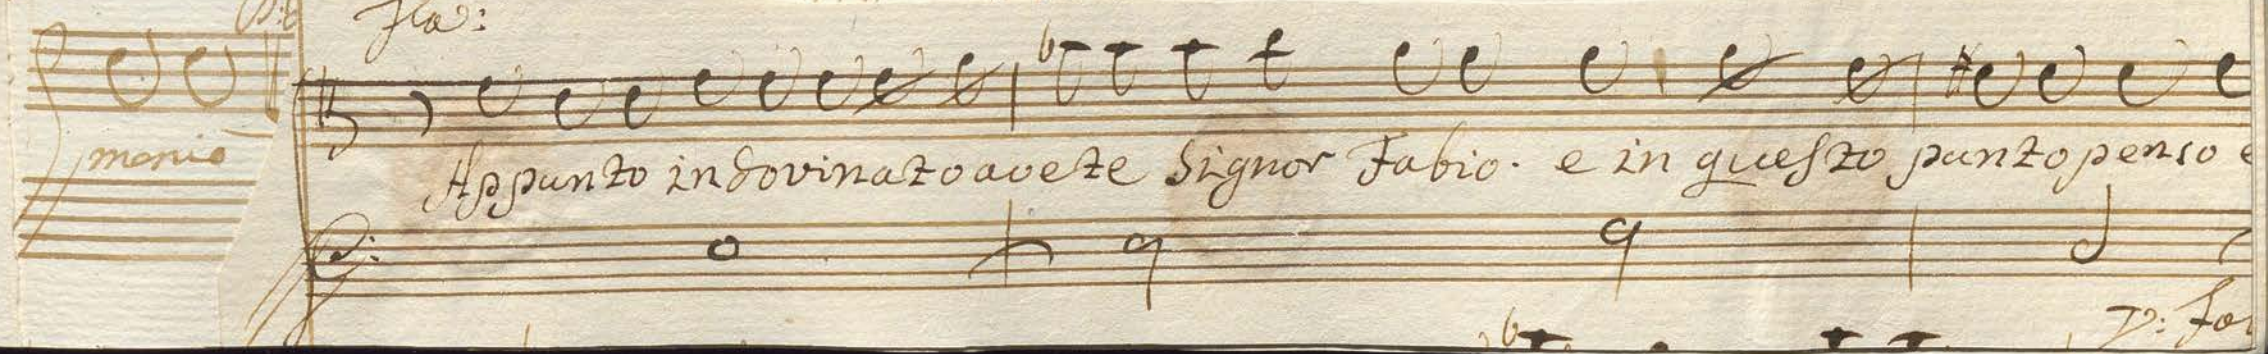 Fla:
monio
Appunto indovinato avete Signor Fabio. e in questo punto penso e
D: Fa